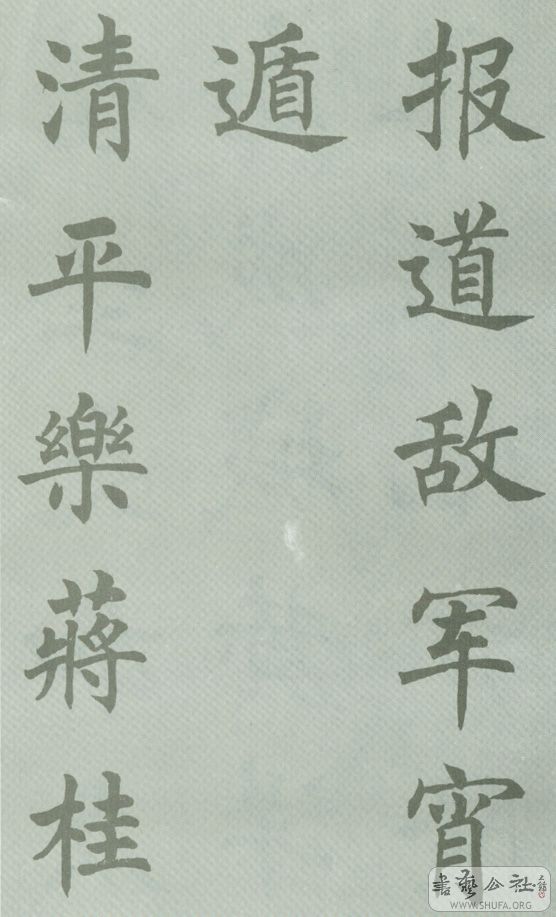 报道敌军宵
遁
清平樂蔣桂
書藝公社
WWW.SHUFA.ORG